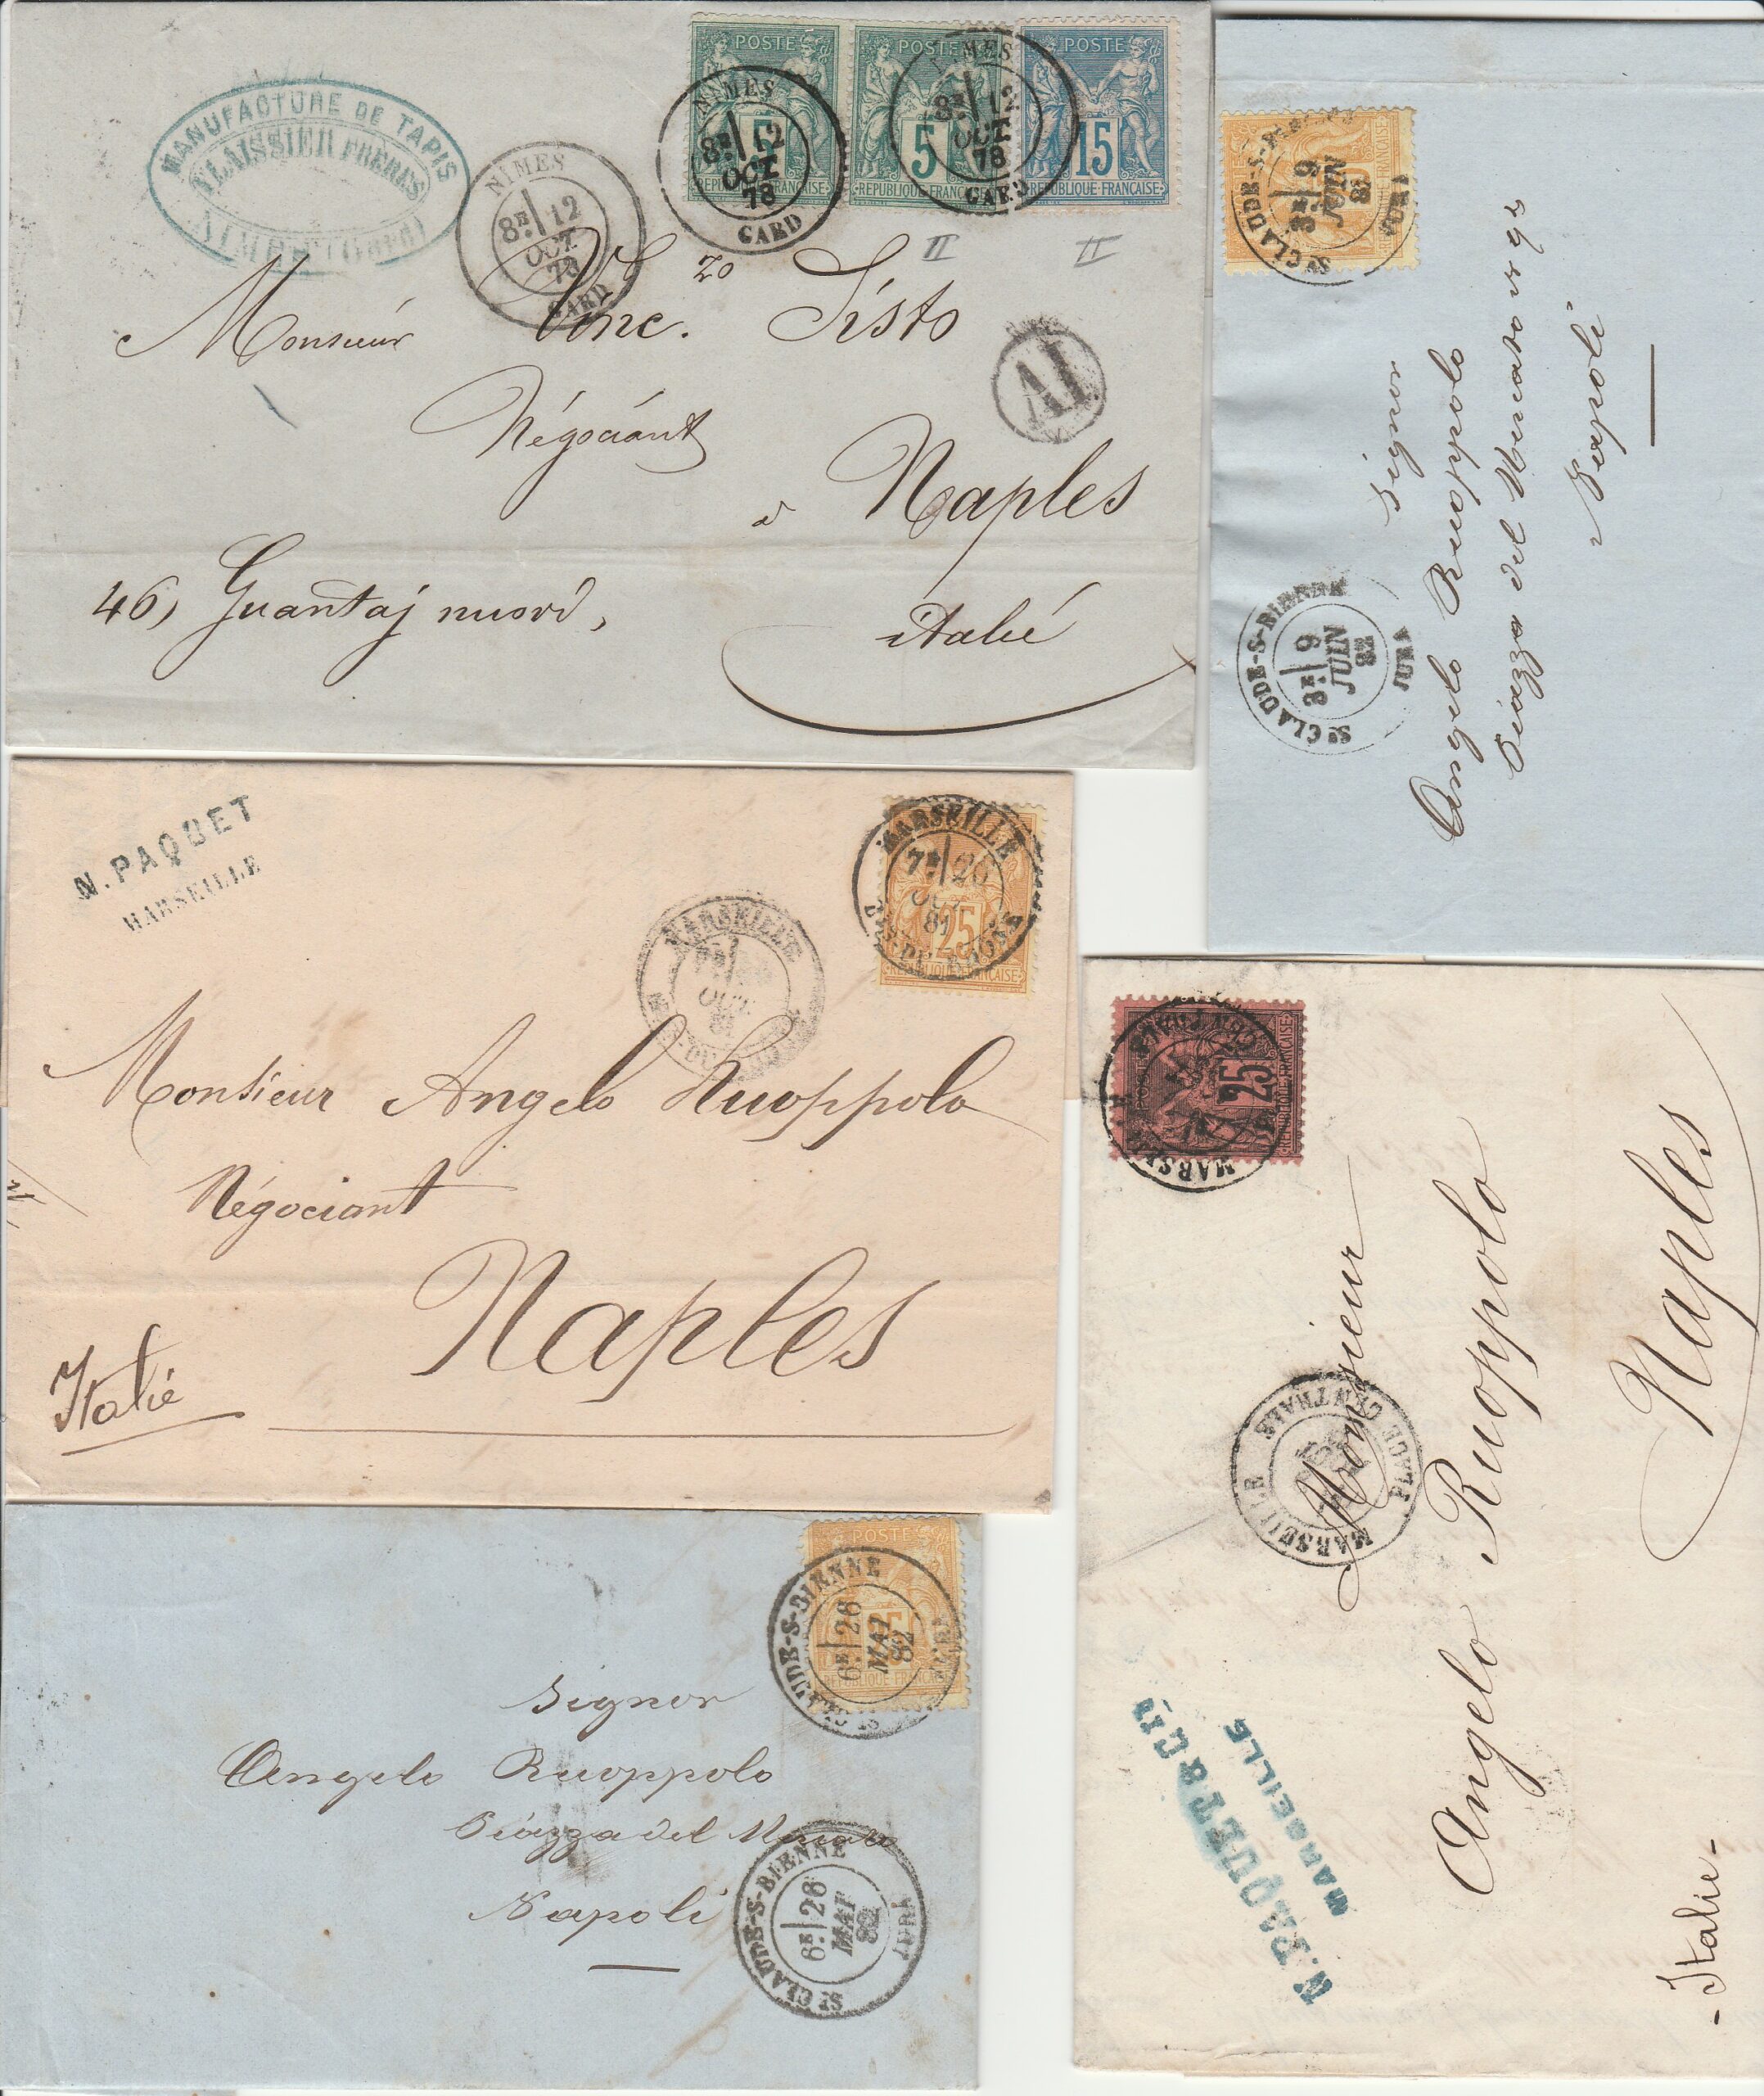 MANUFACTURE DE TAPIS
FLAISSIER FRERES
NIMES (Gard)
NIMES
8E 12
OCT.
78
GARD
POSTE
5
REPUBLIQUE FRANÇAISE
NIMES
8E 12
OCT.
78
GARD
POSTE
5
REPUBLIQUE FRANÇAISE
NIMES
8E 12
OCT.
78
GARD
POSTE
15
REPUBLIQUE FRANÇAISE
II
II
Monsieur Vinc.zo Sisto
AI
Négociant
à Naples
46, Guantaj nuovi,
italie
ST CLAUDE-S-BIENNE
3E 9
JUIN
82
JURA
ST CLAUDE-S-BIENNE
3E 9
JUIN
82
JURA
Signor
Angelo Ruoppolo
Piazza del Mercato
Napoli
N. PAQUET
MARSEILLE
MARSEILLE
OCT.
MARSEILLE
7E 26
OCT.
81
BES-DU-RHONE
25
REPUBLIQUE FRANÇAISE
Monsieur Angelo Ruoppolo
Négociant
Naples
Italie
25
REPUBLIQUE FRANÇAISE
MARSEILLE
MARSEILLE
PLACE CENTRALE
Monsieur
Angelo Ruoppolo
Naples
- Italie -
N. PAQUET & CIE
MARSEILLE
POSTE
REPUBLIQUE FRANÇAISE
ST CLAUDE-S-BIENNE
6E 26
MAI
82
JURA
Signor
Angelo Ruoppolo
Piazza del Mercato
Napoli
ST CLAUDE-S-BIENNE
6E 26
MAI
82
JURA